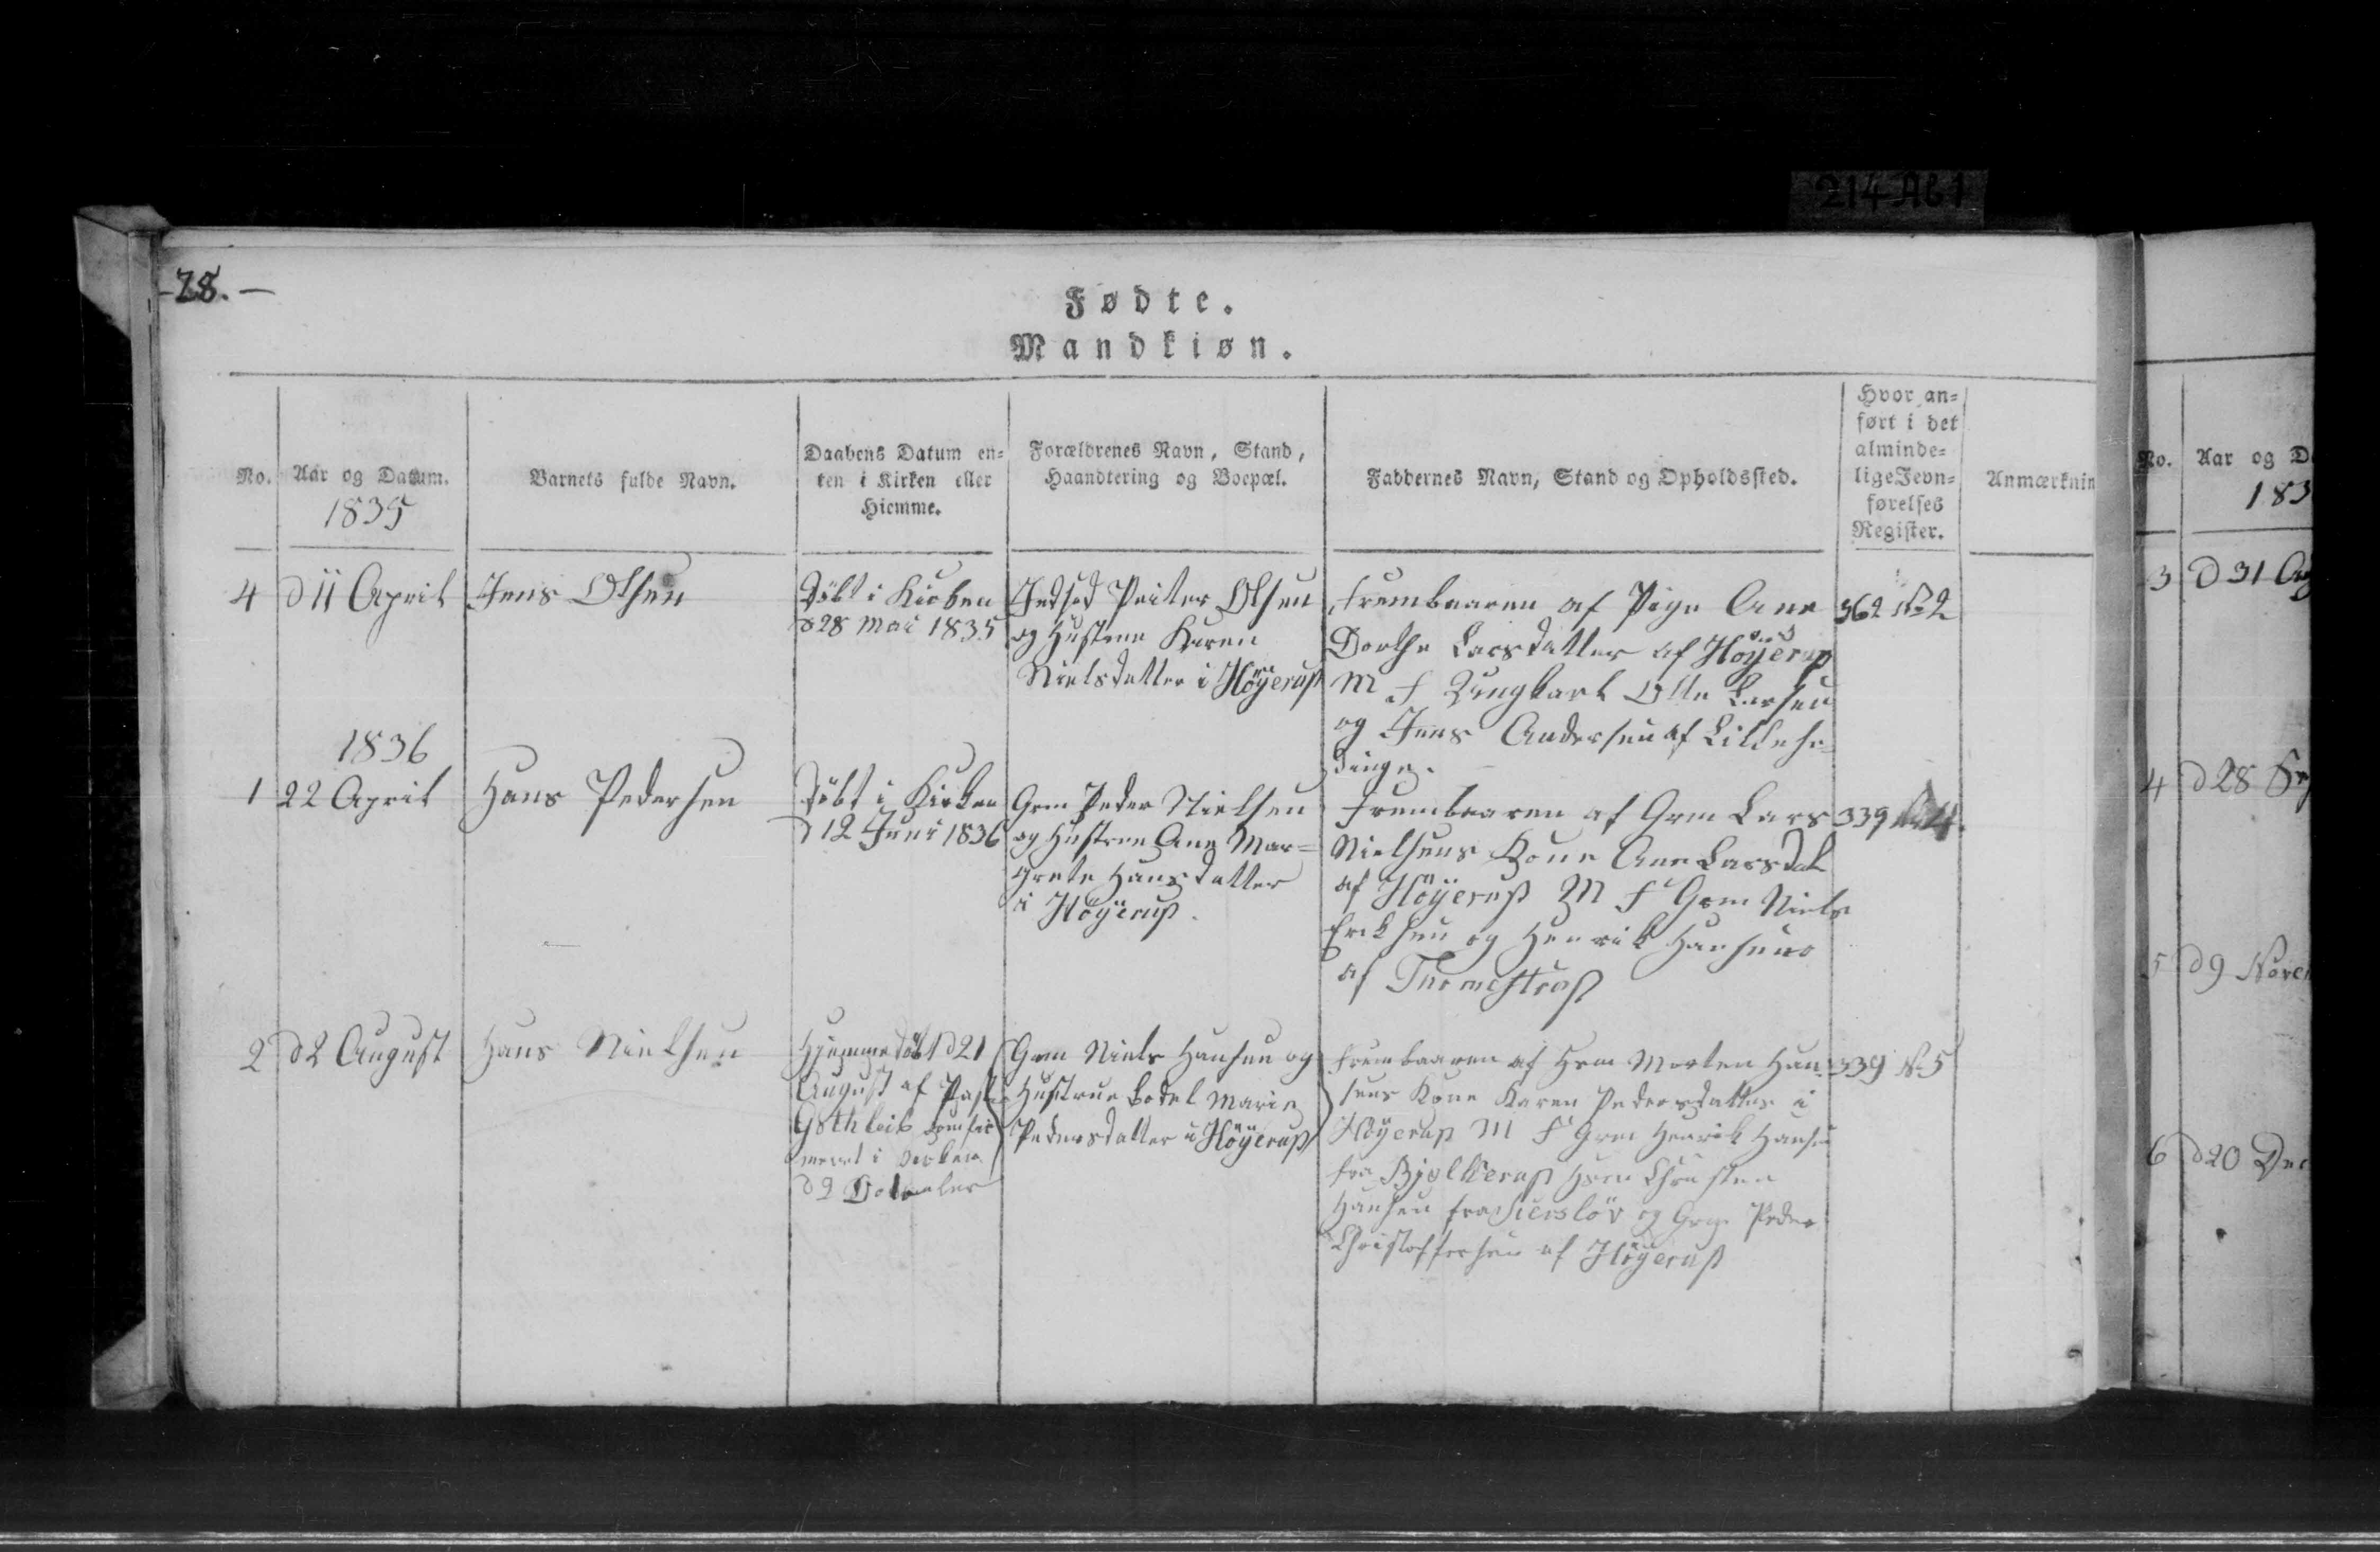 214 Ab 1
-28.-
Fødte.
Mandkiøn.
No.
Aar og Datum.
1835
Barnets fulde Navn.
Daabens Datum en=
ten i Kirken eller
Hiemme.
Forældrenes Navn, Stand,
Haandtering og Boepæl.
Faddernes Navn, Stand og Opholdssted.
Hvor an=
ført i det
alminde=
lige Jevn=
førelses
Register.
Anmærknin
4
d 11 April
Jens Olsen
Döbt i Kirken
d 28 Mai 1835
Indsid Peiter Olsen
og Hustrue Karen
Nielsdatter i Höÿerup
frembaaren af Pige Ane
Dorthe Larsdatter af Höÿerup
M F Ungkarl Olle Larsen
og Jens Andersen af Lillehe=
dinge.
362 No 2
1836
1
22 April
Hans Pedersen
Döbt i Kirken
d 12 Juni 1836
Grm Peder Nielsen
og Hustrue Ane Mar=
grete Hansdatter
i Höÿerup.
frembaaren af Grm Lars
Nielsens Kone Ane Larsdat
af Höÿerup M F Grm Niels
Eriksen og Henrik Hansen
af
339 No 4.
2
d 2 August
Hans Nielsen
Hjemmedöbt d 21
August af Past
Gothleib
i Kirken
d 9 Octoober
Grm Niels Hansen og
Hustrue Bodel Marie
Pedersdatter i Höÿerup
frembaaren af Hsm Morten Han
sens Kone Karen Pedersdatter i
Höÿerup M F Grm Henrik Hansen
fra Bjelkerup Hsm Christen
Hansen fra Sierslöv og Grm Peder
Christoffersen af Höÿerup
339 No 5
No.
Aar og D
183
3
d 31 Aug
4
d 28 Se
5
d 9 Nove
6
d 20 Dec